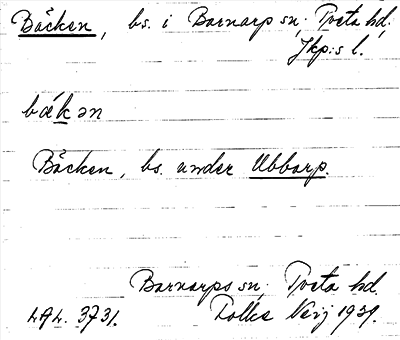 Bäcken, bs. i Barnarp sn, Tveta hd,
Jkp:s l.
bækən
Bäcken, bs. under Ubbarp.
Barnarps sn, Tveta hd.
3731. Folke 1931.